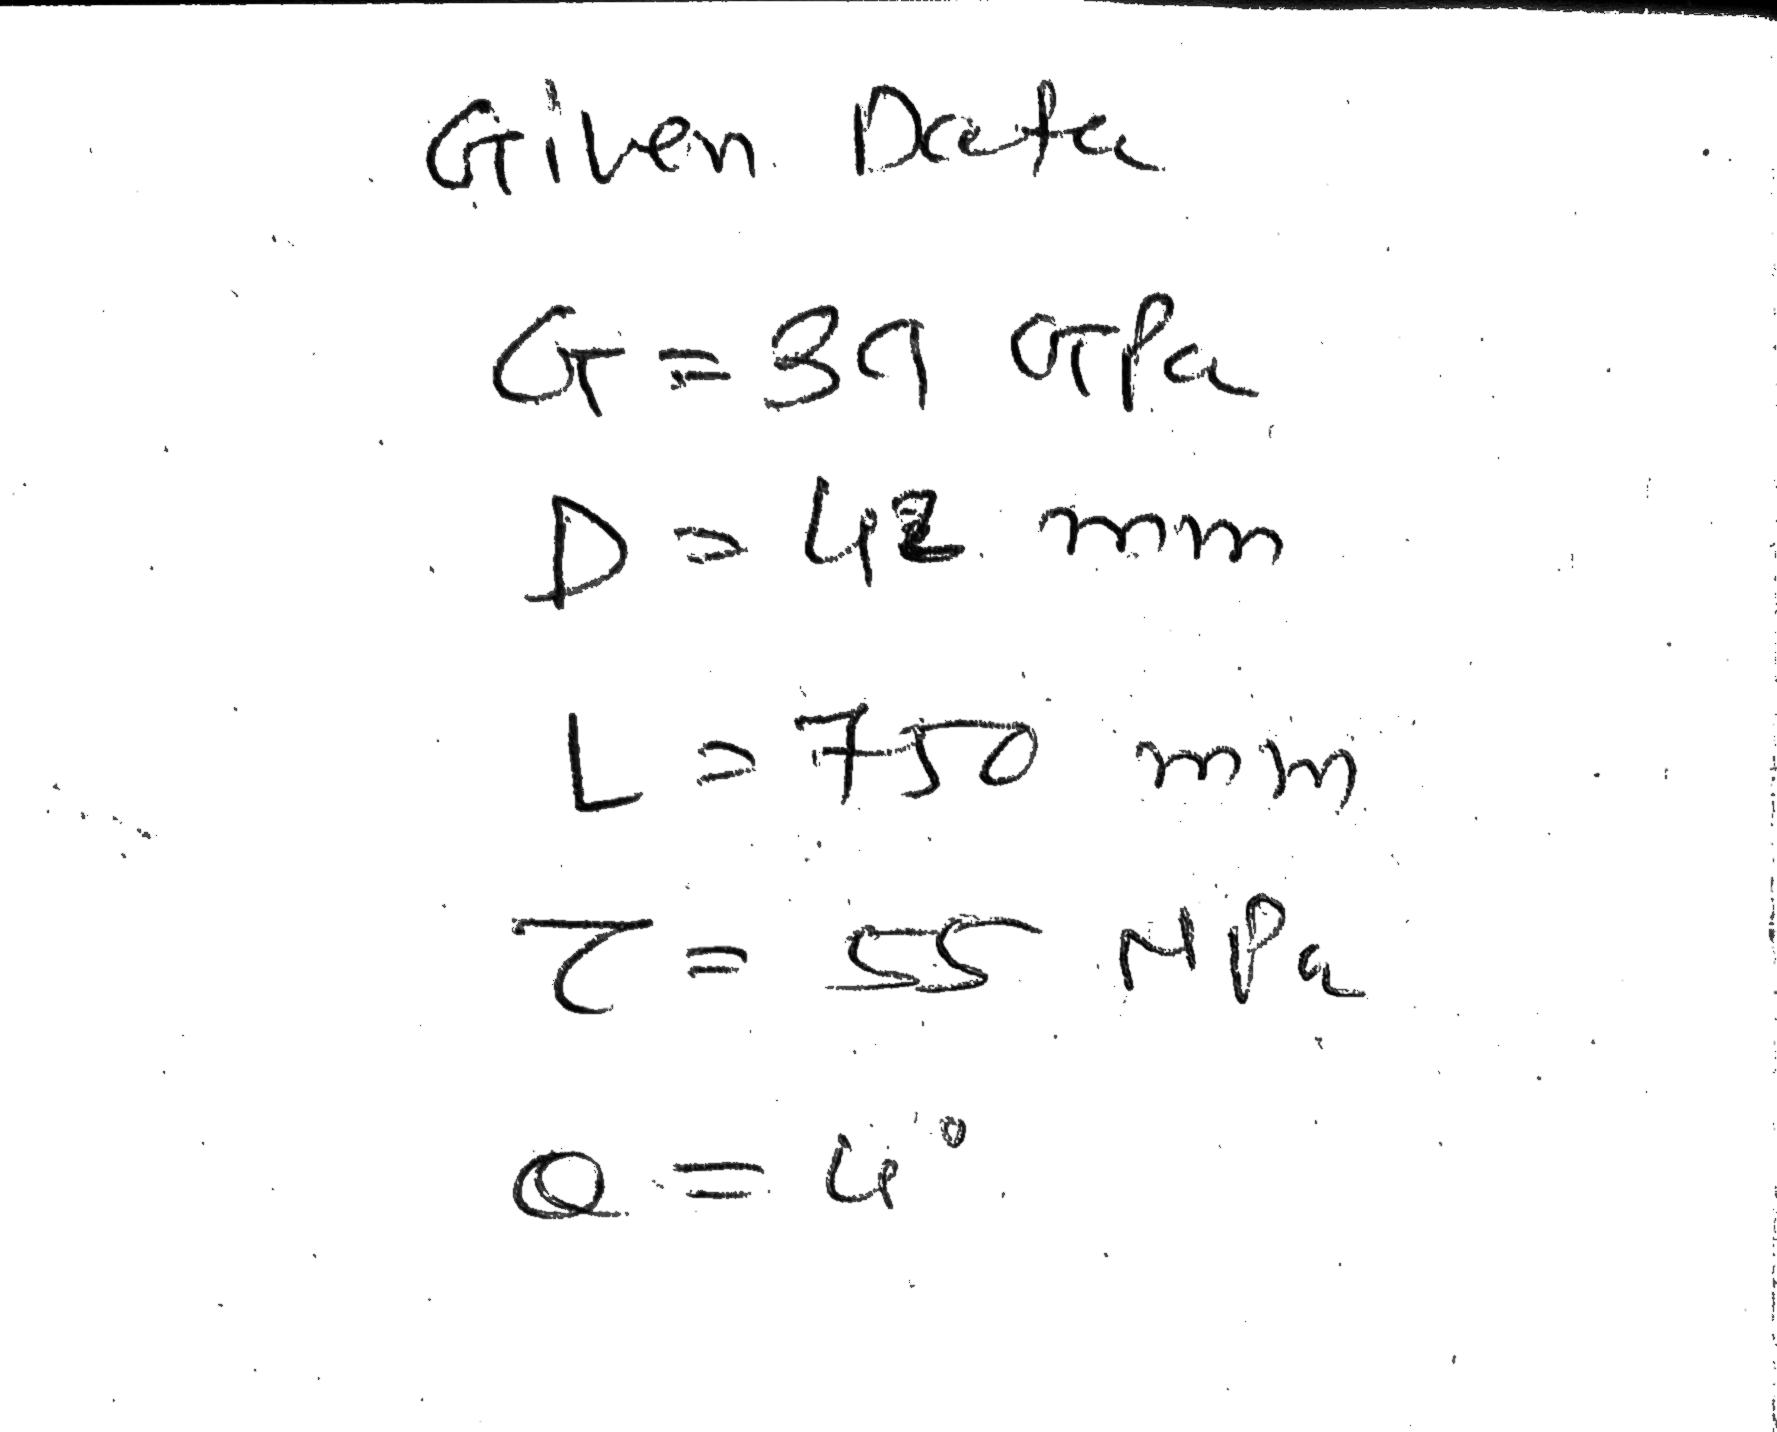 Given Data
G = 39 GPa
D = 42 mm
L = 750 mm
τ = 55 MPa
θ = 4°